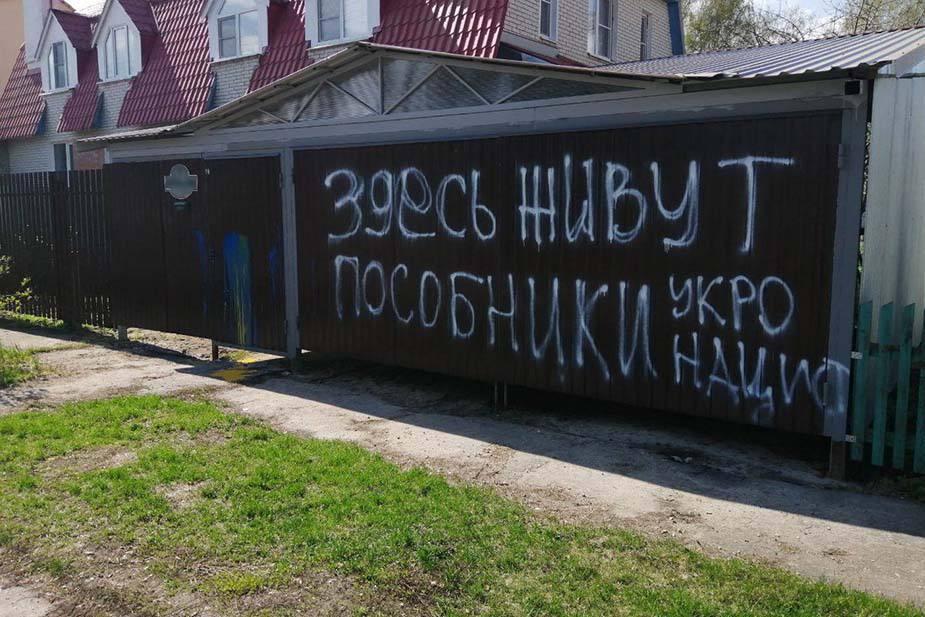 Здесь ЖИВУТ
ПОСОБНИКИ УКРО
НАЦИФ